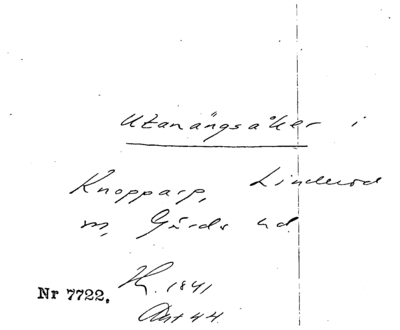 Utanängsåker i
Knopparp, Linderöd
m, Gärds hd
Nr 7722. H. 1841
Akt 44.